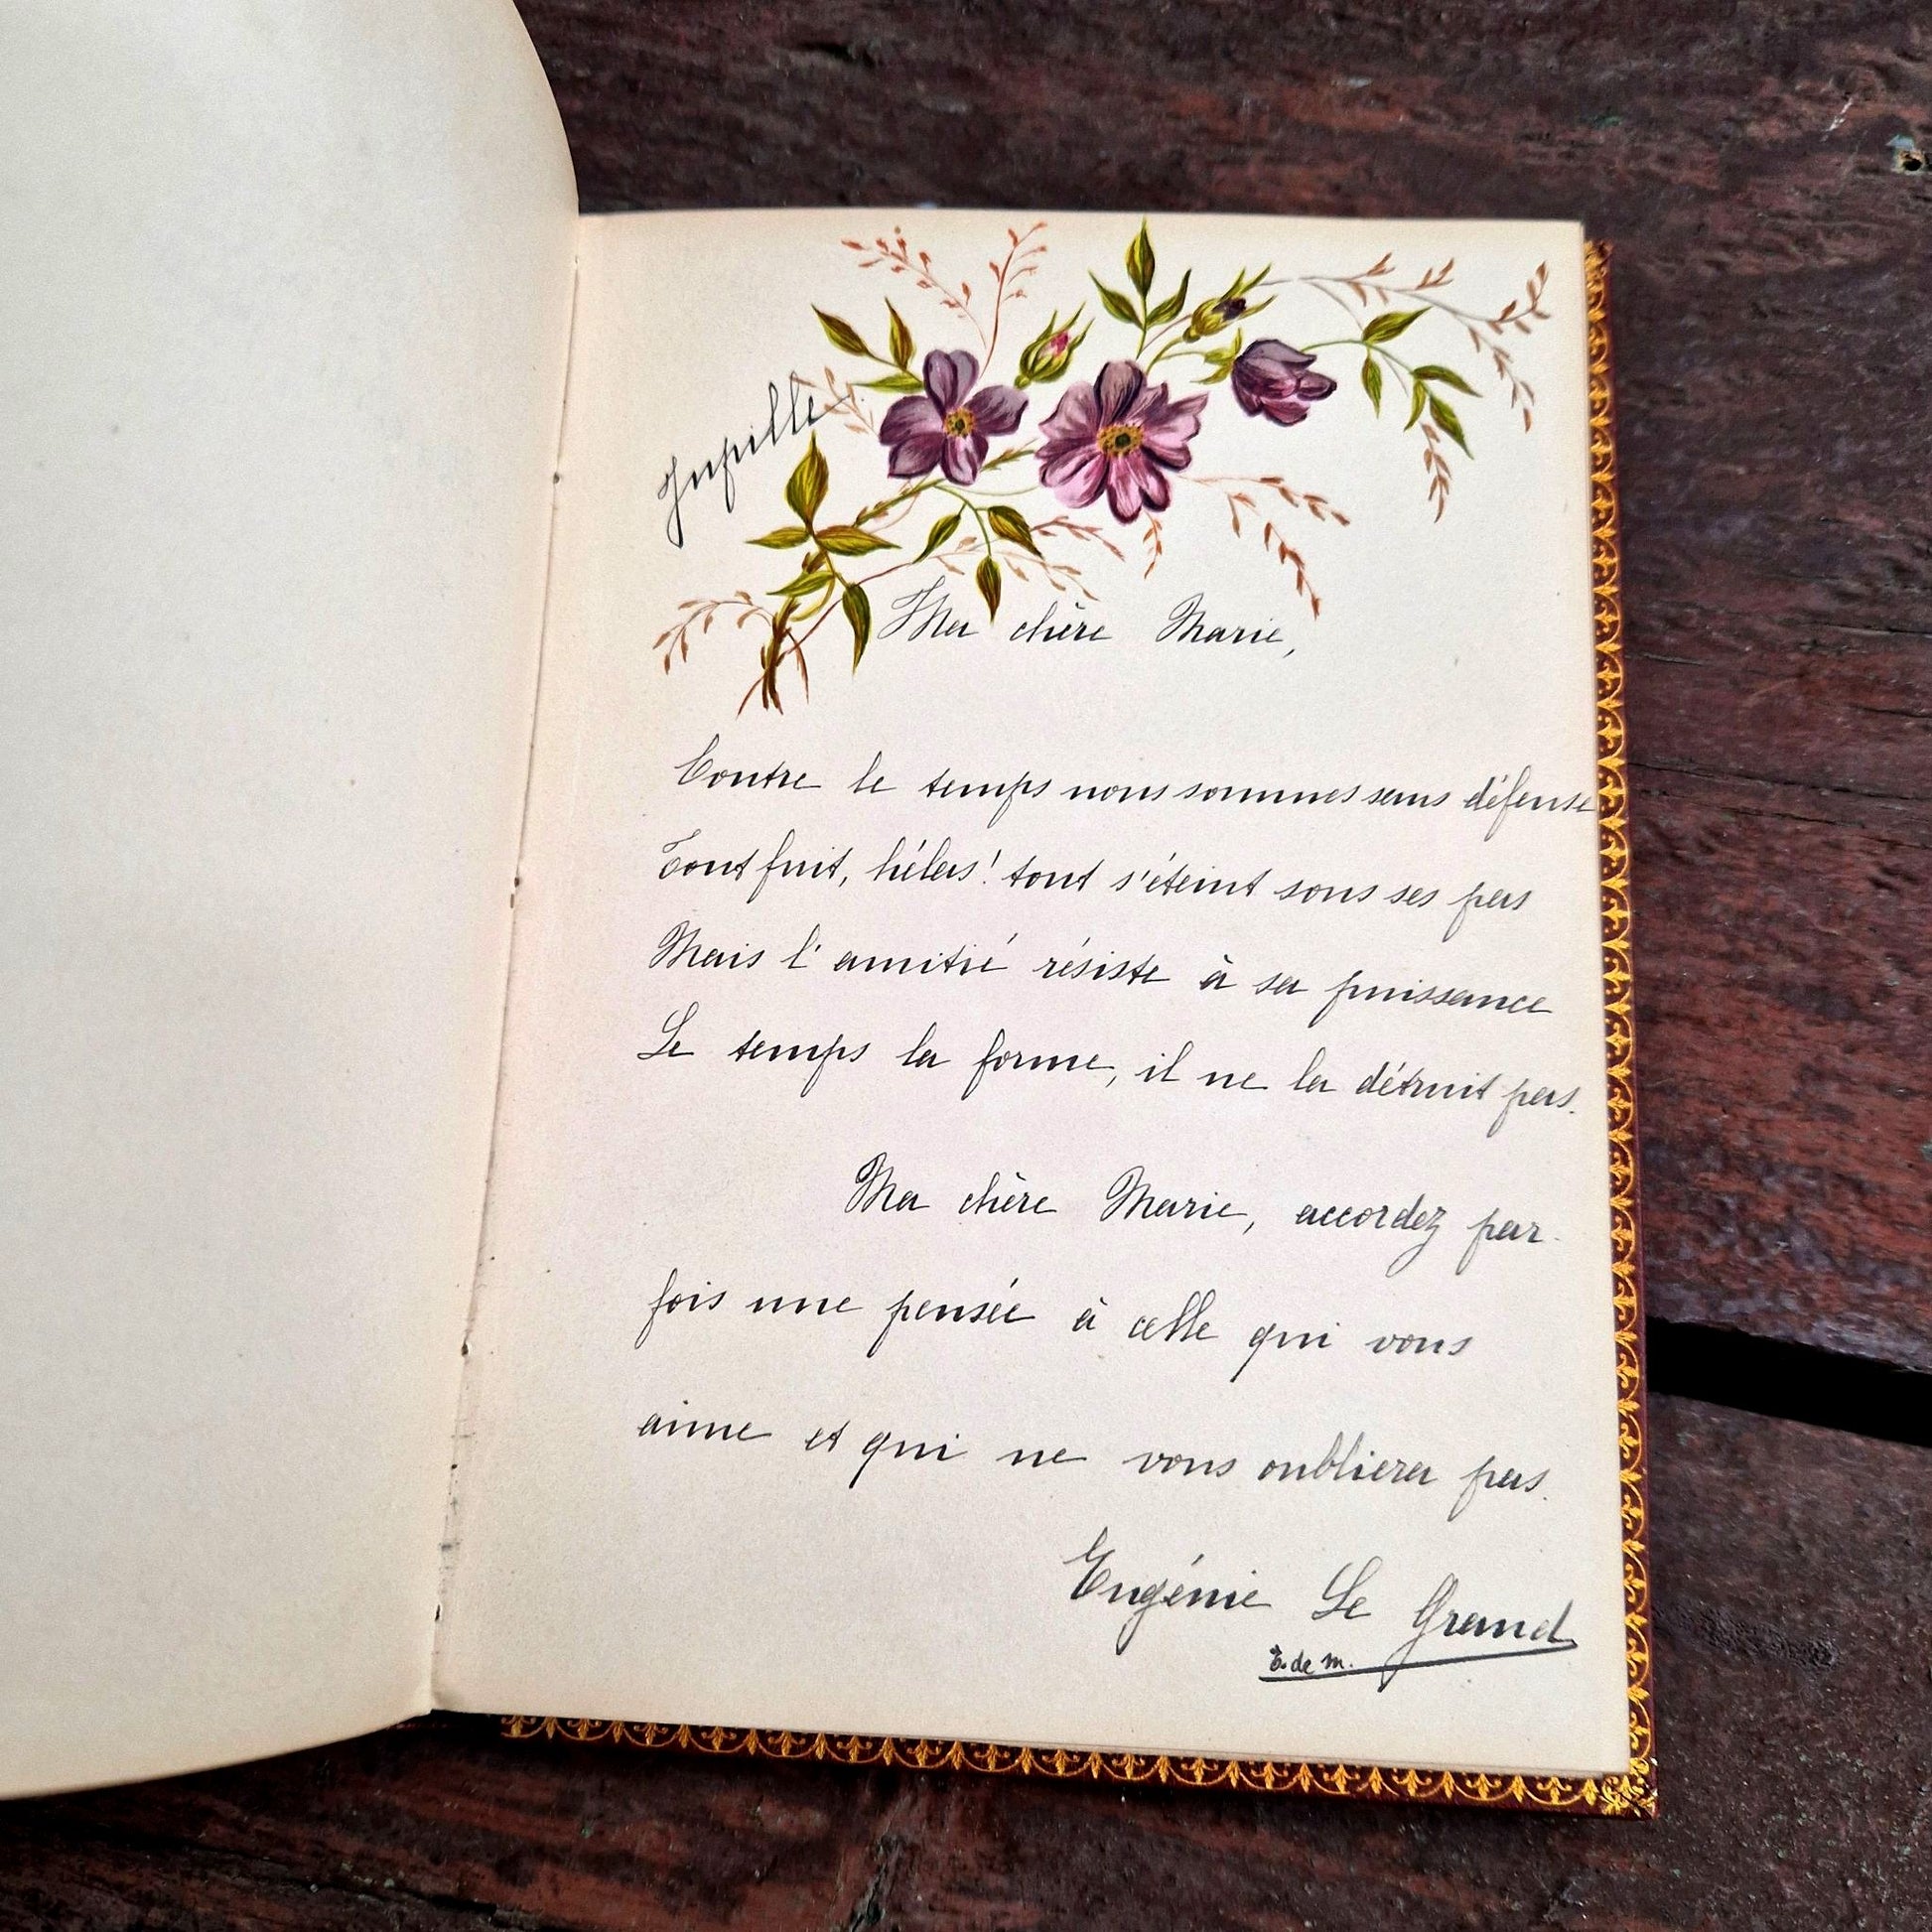 Jupille.
Ma chère Marie,
Contre le temps nous sommes sans défense
Tout fuit, hélas! tout s'éteint sous ses pas
Mais l'amitié résiste à sa puissance
Le temps la forme, il ne la détruit pas.
Ma chère Marie, accordez par-
fois une pensée à celle qui vous
aime et qui ne vous oubliera pas.
Eugénie Le Grand
E. de M.